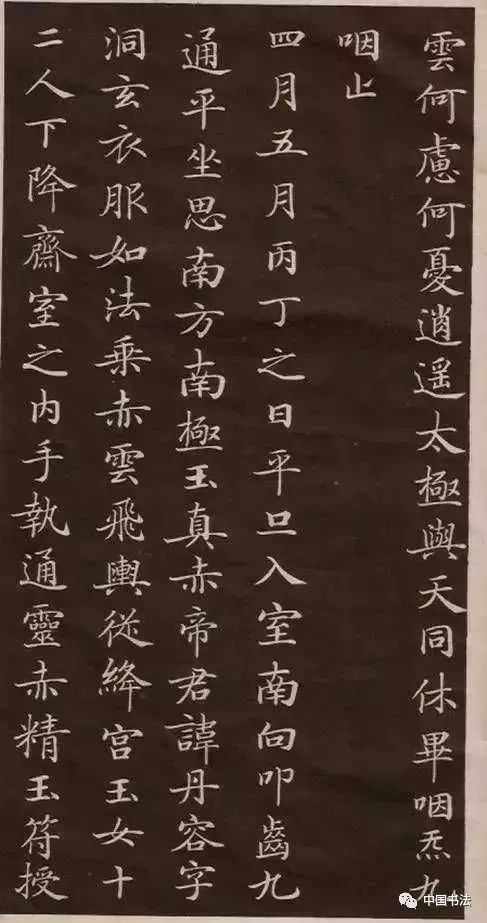 雲何慮何憂逍遥太極與天同休畢咽炁九
咽止
四月五月丙丁之日平旦入室南向叩齒九
通平坐思南方南極玉真赤帝君諱丹容字
洞玄衣服如法乗赤雲飛輿從絳宫玉女十
二人下降齋室之内手執通靈赤精玉符授
中国书法